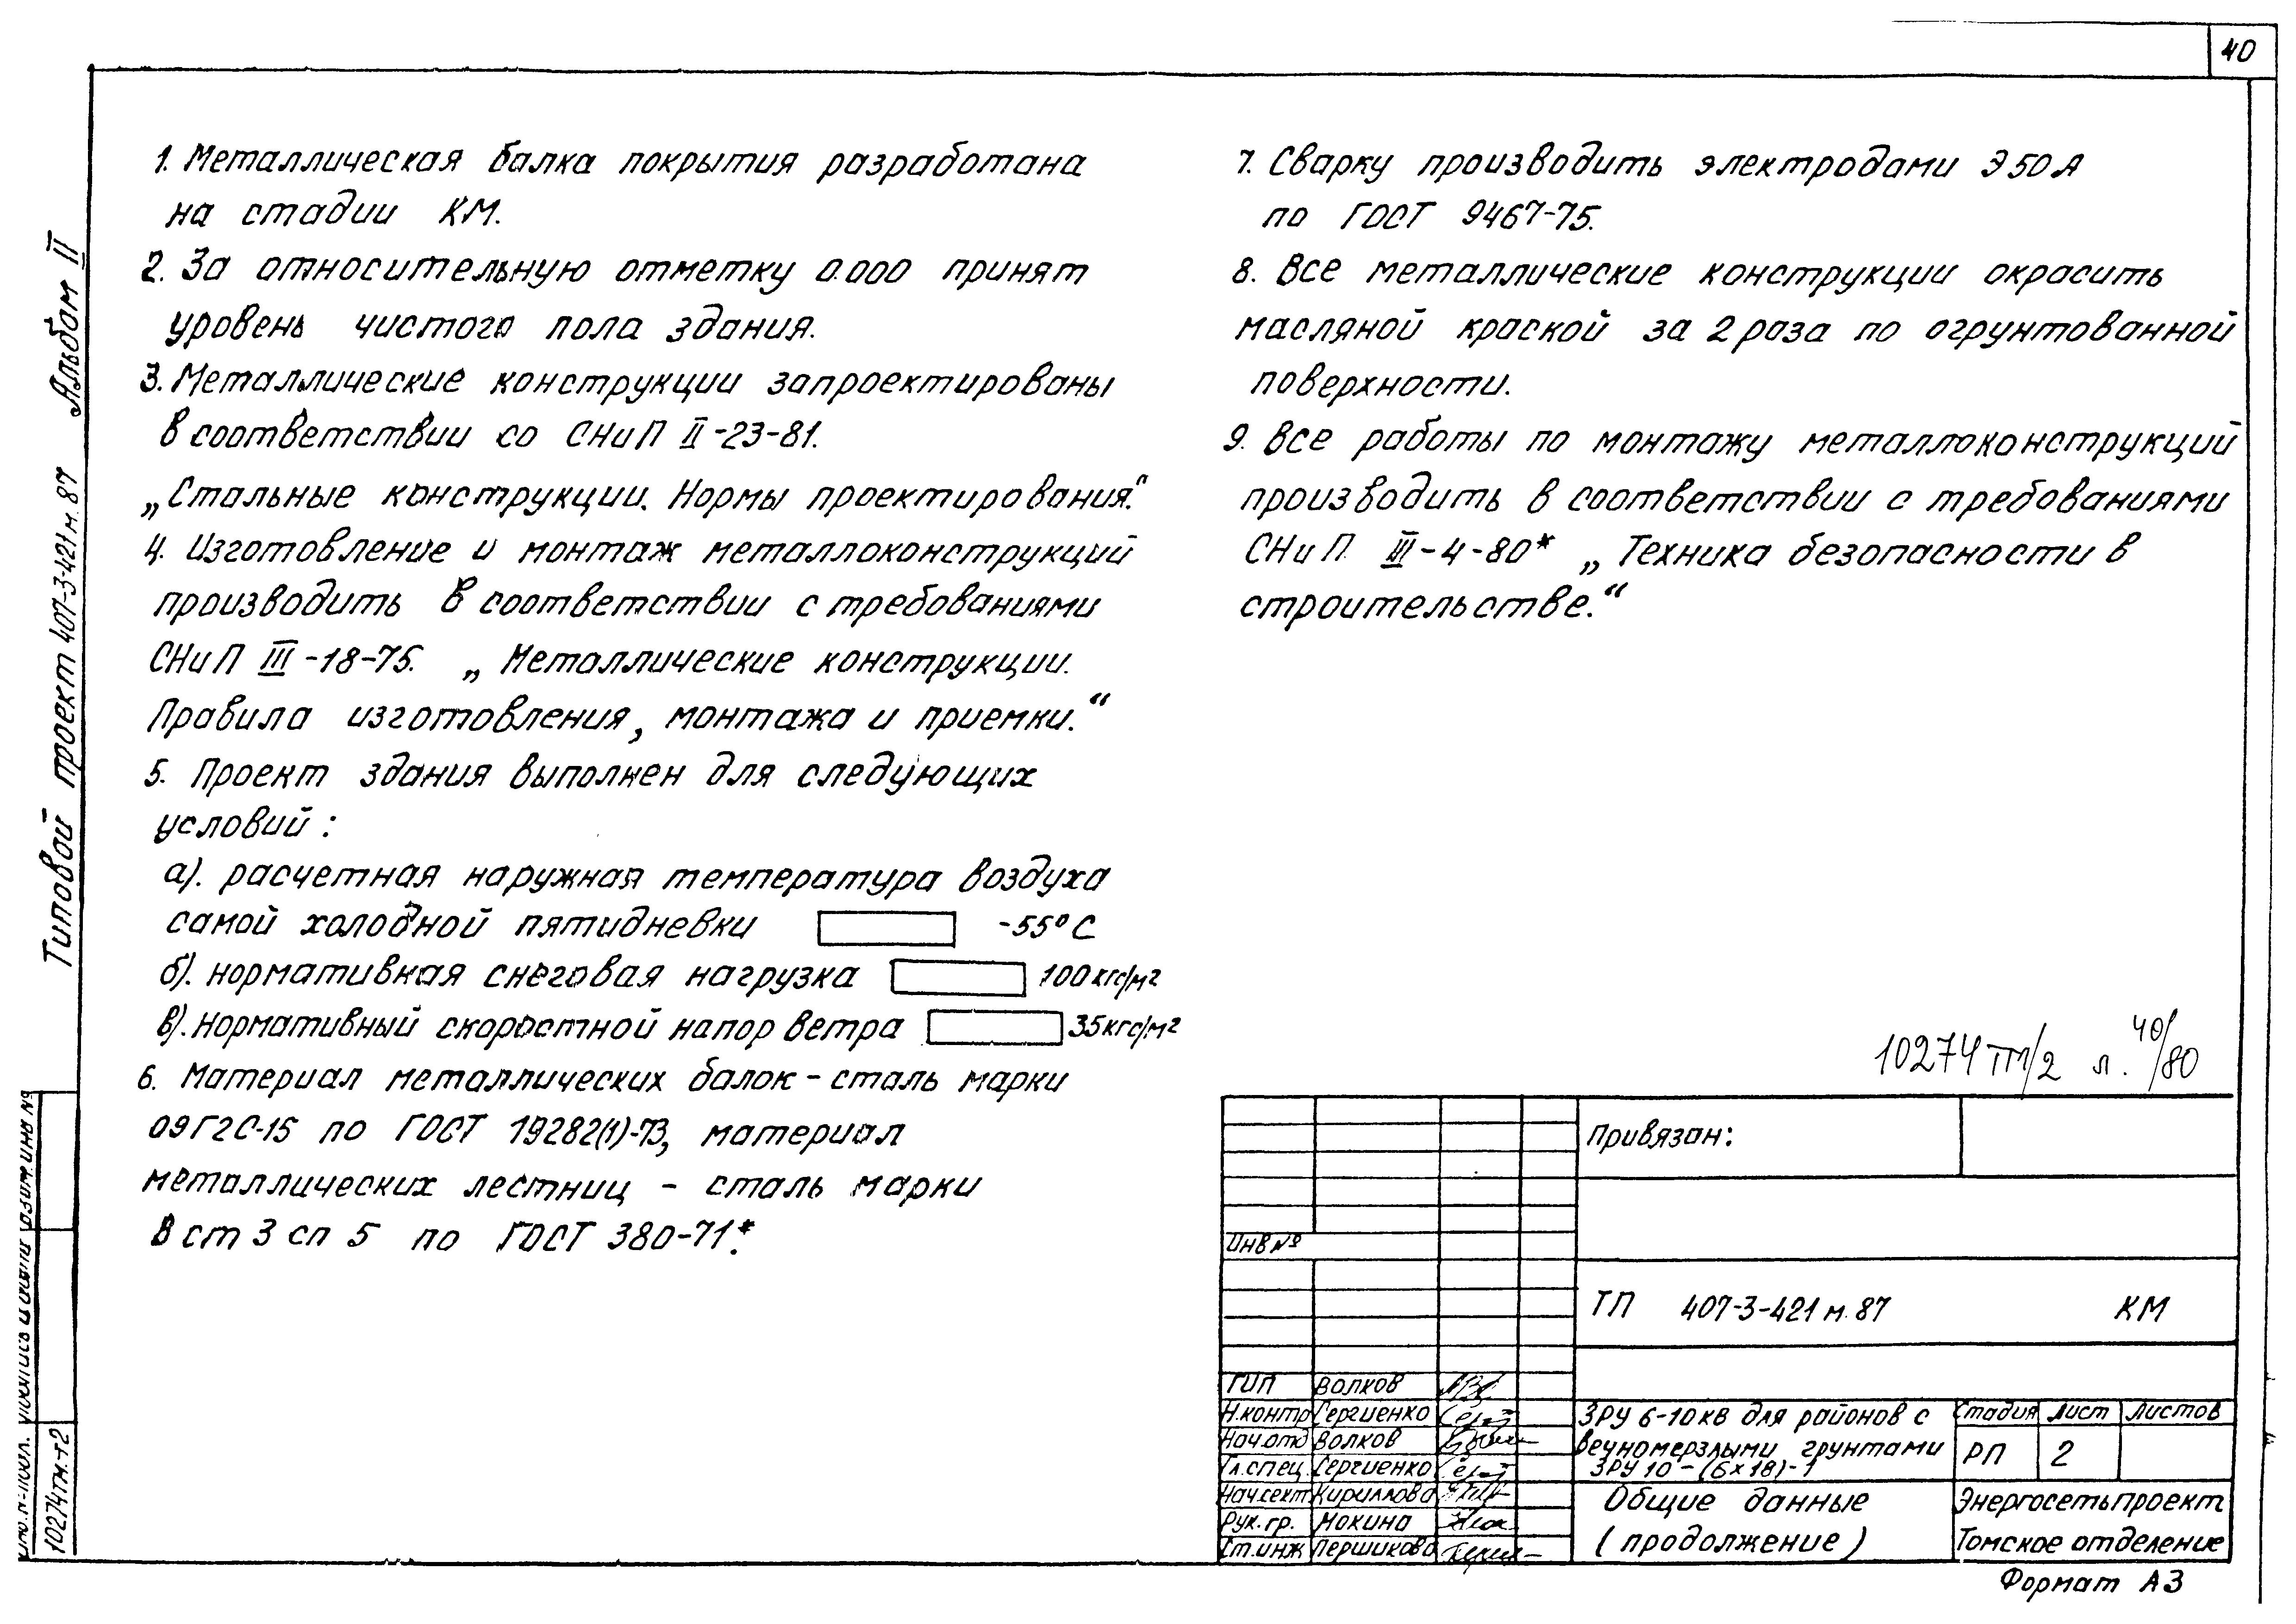 40
1. Металлическая балка покрытия разработана
на стадии КМ.
2. За относительную отметку 0.000 принят
уровень чистого пола здания.
3. Металлические конструкции запроектированы
в соответствии со СНиП II-23-81.
„Стальные конструкции. Нормы проектирования.“
4. Изготовление и монтаж металлоконструкций
производить в соответствии с требованиями
СНиП III-18-75. „Металлические конструкции.
Правила изготовления, монтажа и приемки.“
5. Проект здания выполнен для следующих
условий:
а). расчетная наружная температура воздуха
самой холодной пятидневки -55°С
б). нормативная снеговая нагрузка 100кгс/м²
в). нормативный скоростной напор ветра 35кгс/м²
6. Материал металлических балок - сталь марки
09Г2С-15 по ГОСТ 19282(1)-73, материал
металлических лестниц - сталь марки
В ст 3 сп 5 по ГОСТ 380-71*.
7. Сварку производить электродами Э50А
по ГОСТ 9467-75.
8. Все металлические конструкции окрасить
масляной краской за 2 раза по огрунтованной
поверхности.
9. Все работы по монтажу металлоконструкций
производить в соответствии с требованиями
СНиП III-4-80* „Техника безопасности в
строительстве.“
Типовой проект 407-3-421м.87 Альбом II
10274тм-т2
10274тм/2 л. 40/80
Привязан:
Инв №
ТП 407-3-421м.87 КМ
ГИП Волков
Н.контр Сергиенко
Нач.отд Волков
Гл.спец. Сергиенко
Нач.сект Кириллова
Рук.гр. Мокина
Ст.инж Першикова
ЗРУ 6-10кВ для районов с
вечномерзлыми грунтами
ЗРУ 10-(6×18)-1
Стадия Лист Листов
РП 2
Общие данные
(продолжение)
Энергосетьпроект
Томское отделение
Формат А3